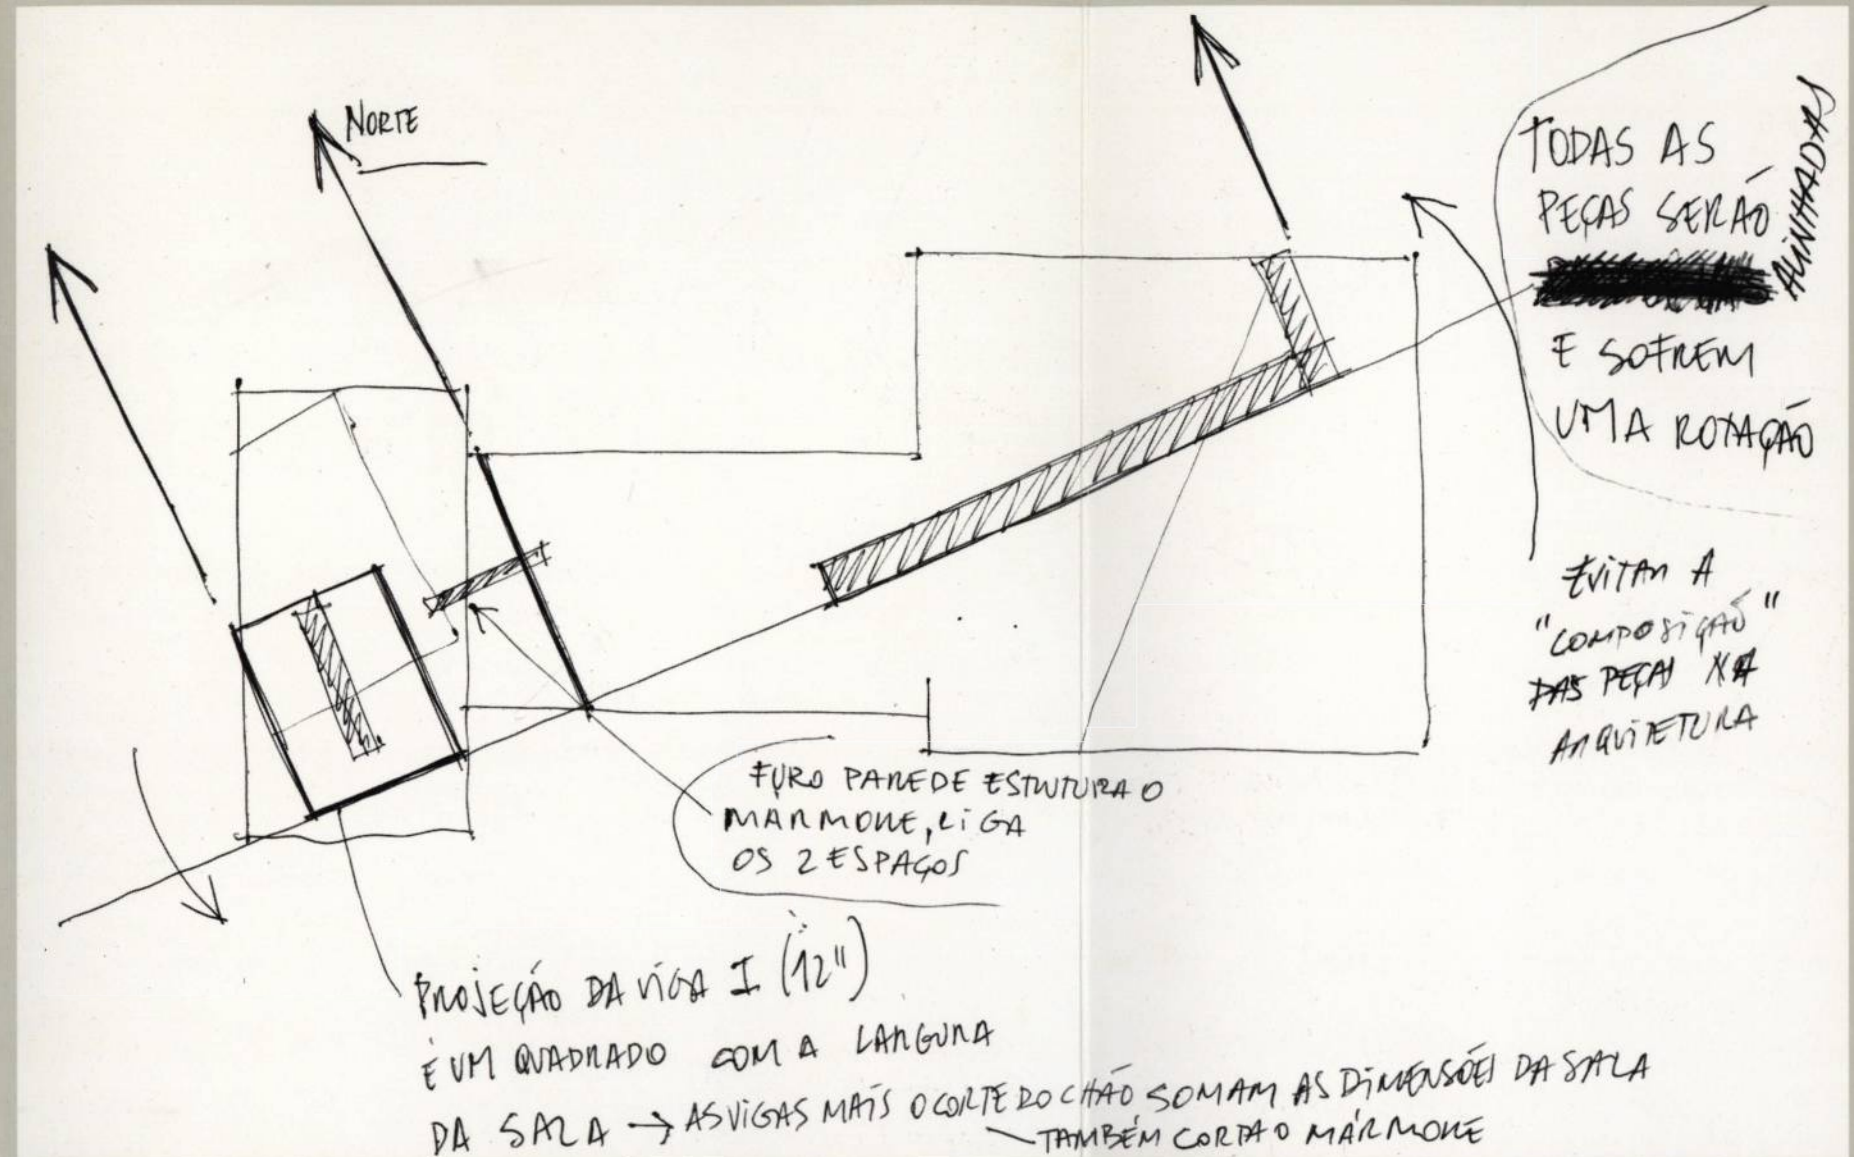 NORTE
TODAS AS
PEÇAS SERÃO
ALINHADAS
E SOFREM
UMA ROTAÇÃO
EVITAR A
"COMPOSIÇÃO"
DAS PEÇAS NA
ARQUITETURA
FURO PAREDE ESTRUTURA O
MARMORE, LIGA
OS 2 ESPAÇOS
PROJEÇÃO DA VIGA I (12")
É UM QUADRADO COM A LARGURA
DA SALA → AS VIGAS MAIS O CORTE DO CHÃO SOMAM AS DIMENSÕES DA SALA
TAMBÉM CORTA O MÁRMORE